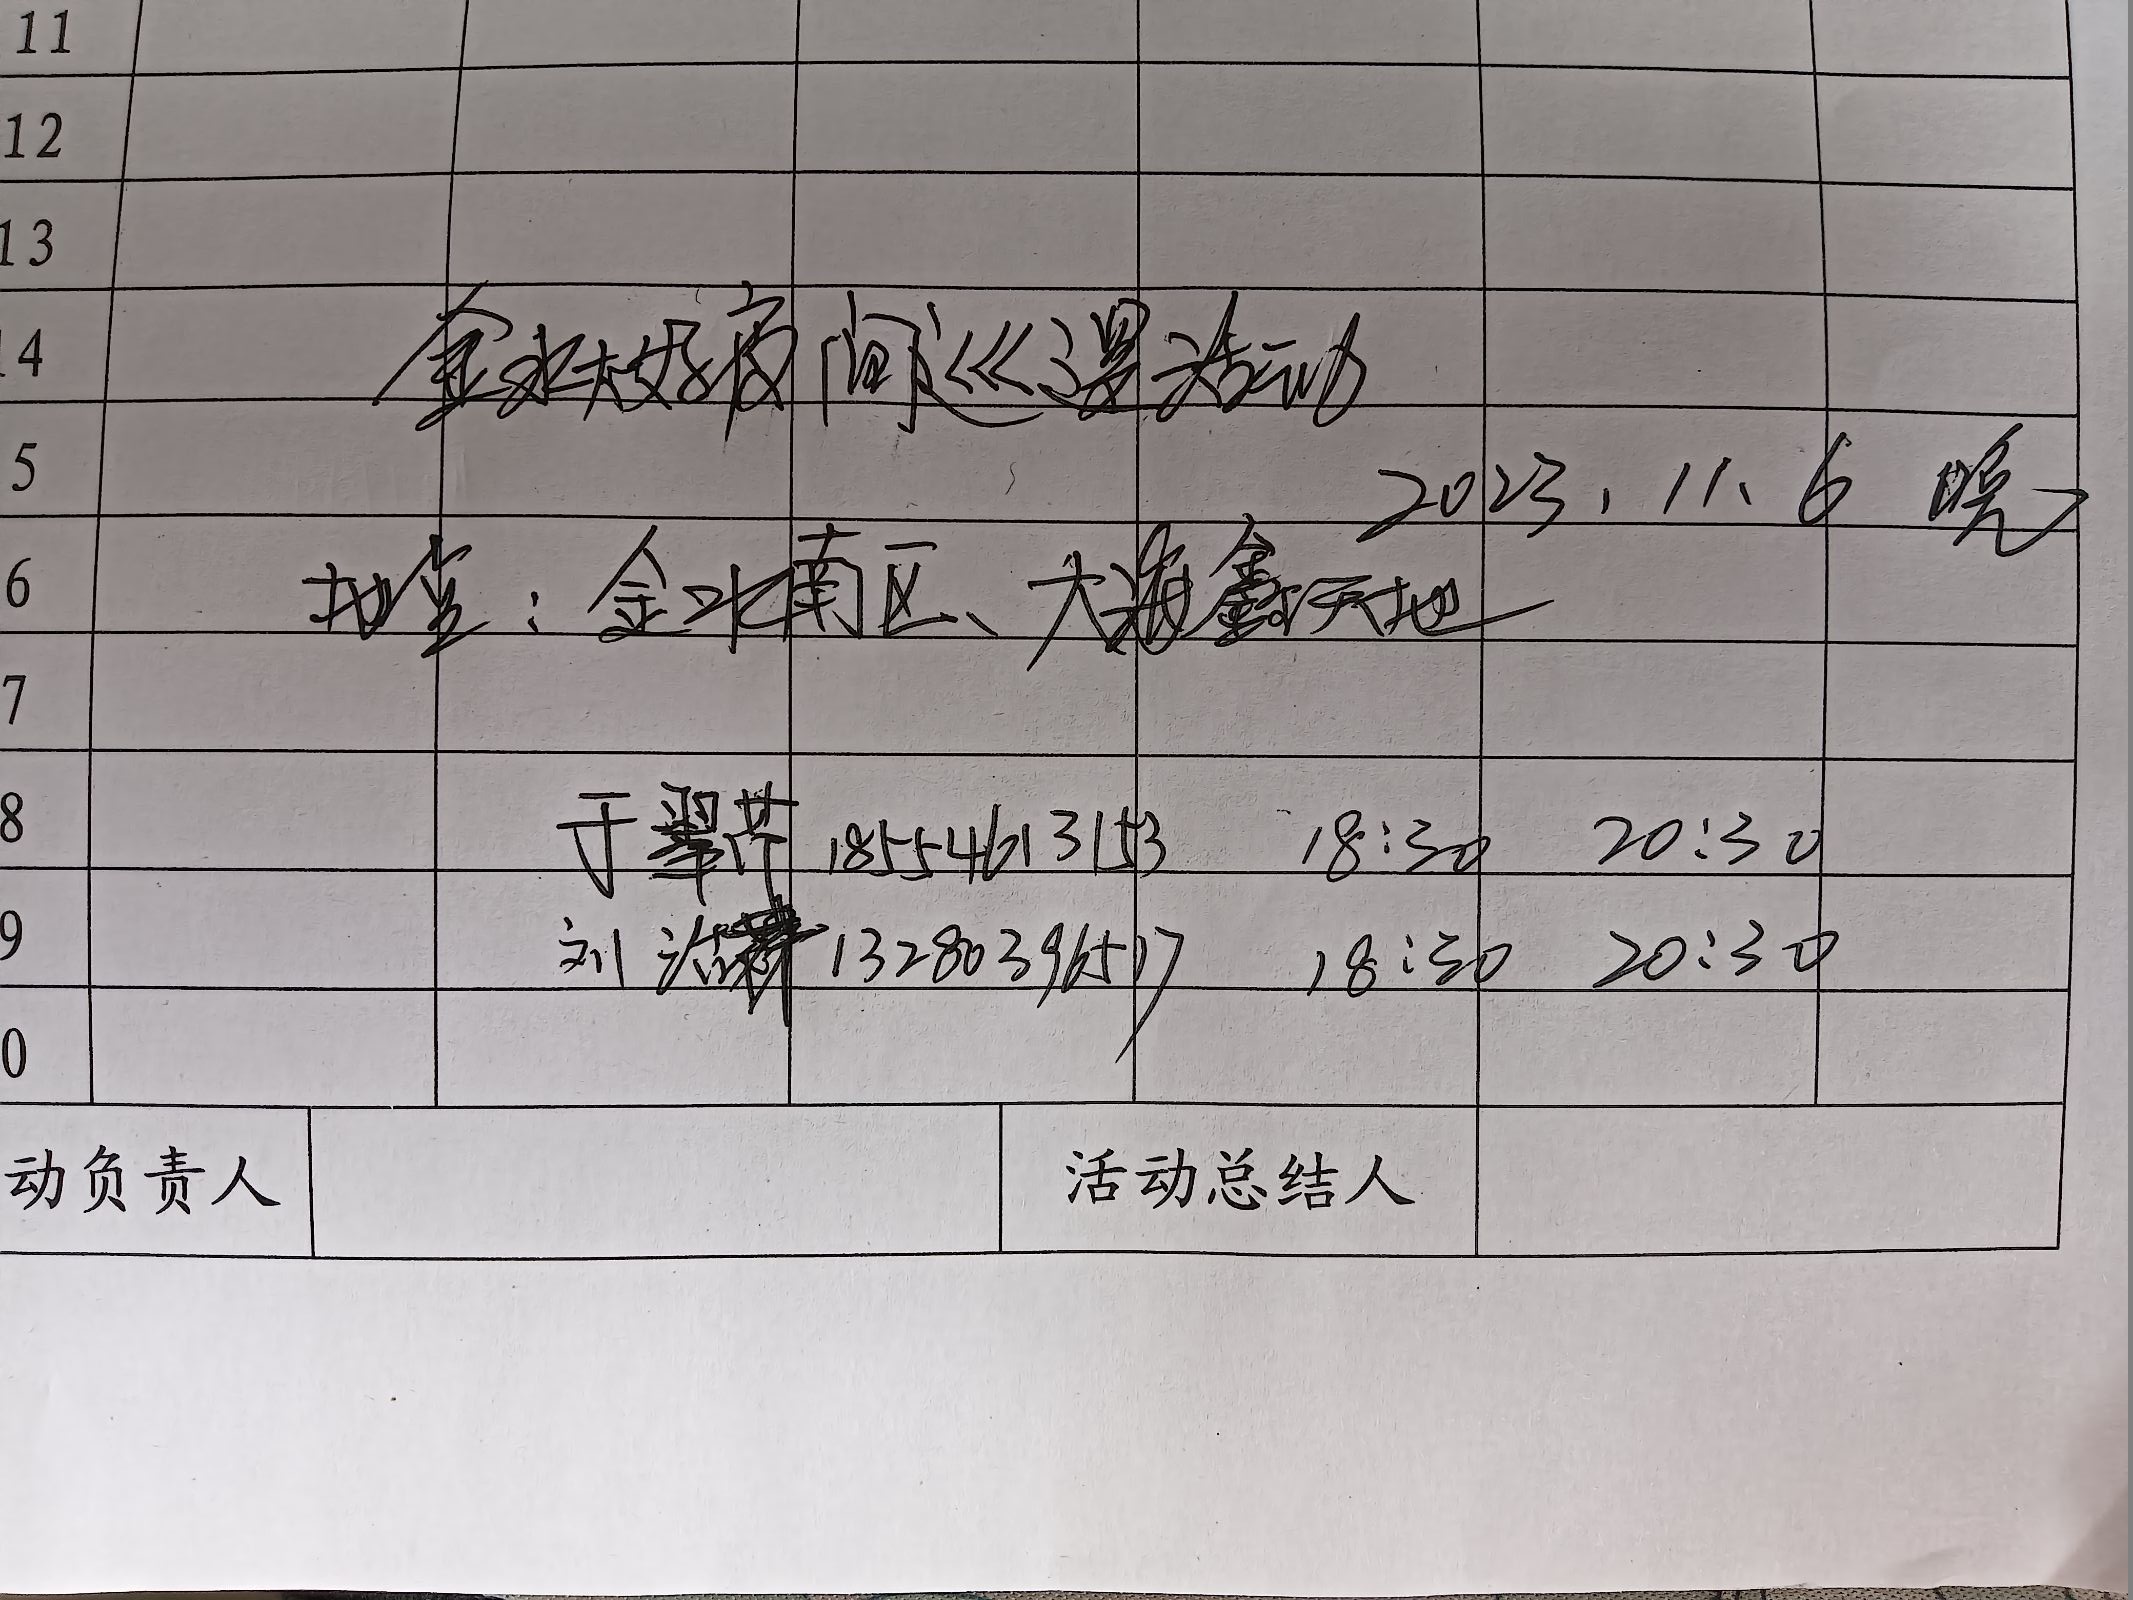 11
12
13
14
金水大妈夜间巡逻活动
5
2023.11.6 晚
6
地点：金水南区、大海鑫天地
7
8 于翠芹 18554613153 18:30 20:30
9 刘 13280396517 18:30 20:30
0
动负责人 活动总结人